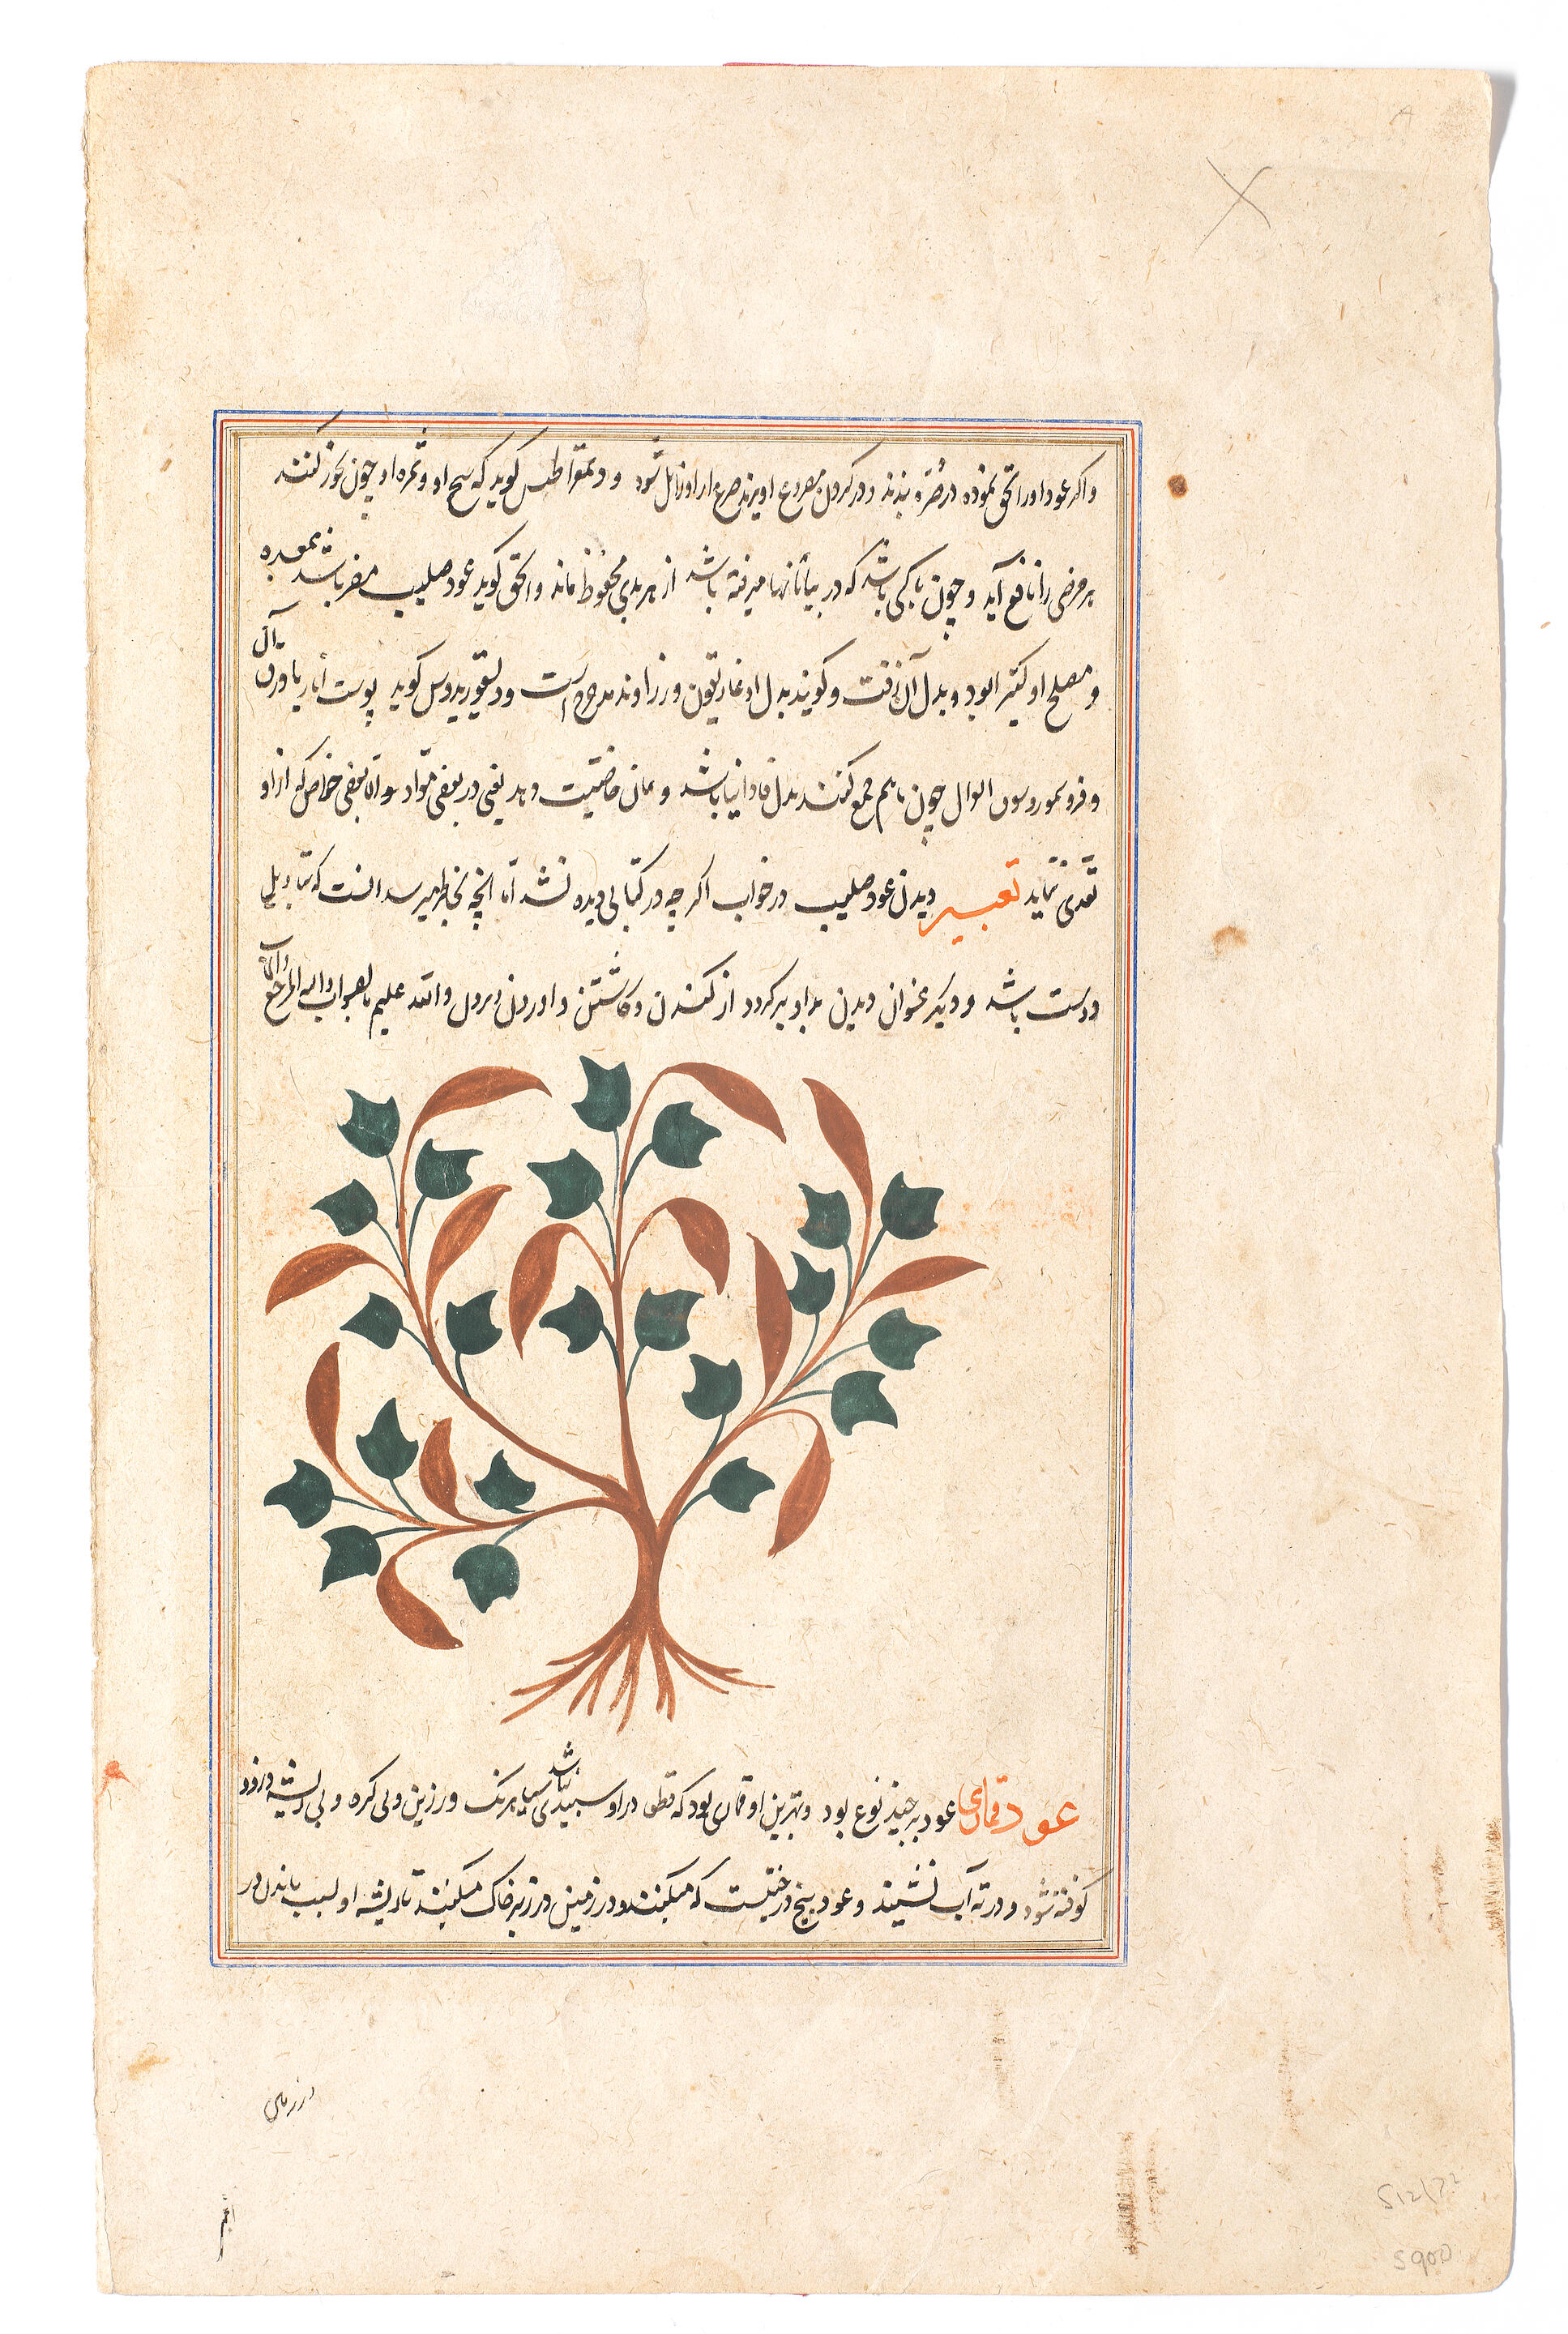 واکر عود اورا سحق نموده در صره بندند و در کردن مصروع اویزند صرع ازاو زائل شود و دیسقراطیس کوید که بیخ او و ثمره او چون بخور کنند
هر مرضی را نافع آید و چون با کسی باشد که در بیابانها میرفته باشد از هر بدی محفوظ ماند و اسحق کوید عود صلیب مضر باشد بمعده
و مصلح او کتیرا بود و بدل آن زفت و کویند بدل او غاریقون و زراوند مدحرج است و دیسقوریدوس کوید پوست انار یا ورق آن
و فرو سمور و سون الوال چون باهم جمع کنند بدل فاوانیا باشد و همان خاصیت دهد یعنی در بعضی مواد سوا بعضی خواص که ازاو
تعدی نماید تعبیر دیدن عود صلیب در خواب اکر چه در کتابی دیده نشد اما انچه بخاطر میرسد انست که بتاویل
درست باشد و دیکر بخوان دیدن بداو بر کردد از کندن و کاشتن و اوردن و بردن والله علیم بالصواب والیه المرجع والماب
عود قماری عود بر چند نوع بود و بهترین او قماری بود که قطعا در او سپیدی نباشد سیاه رنک و رزین و بی کره و بی ریشه و زود
کوفته شود و در ته آب نشیند و عود بیخ درختیست که میکنند و در زمین در زیر خاک میکنند تا ریشه او بسبب ماندن در
در زمین